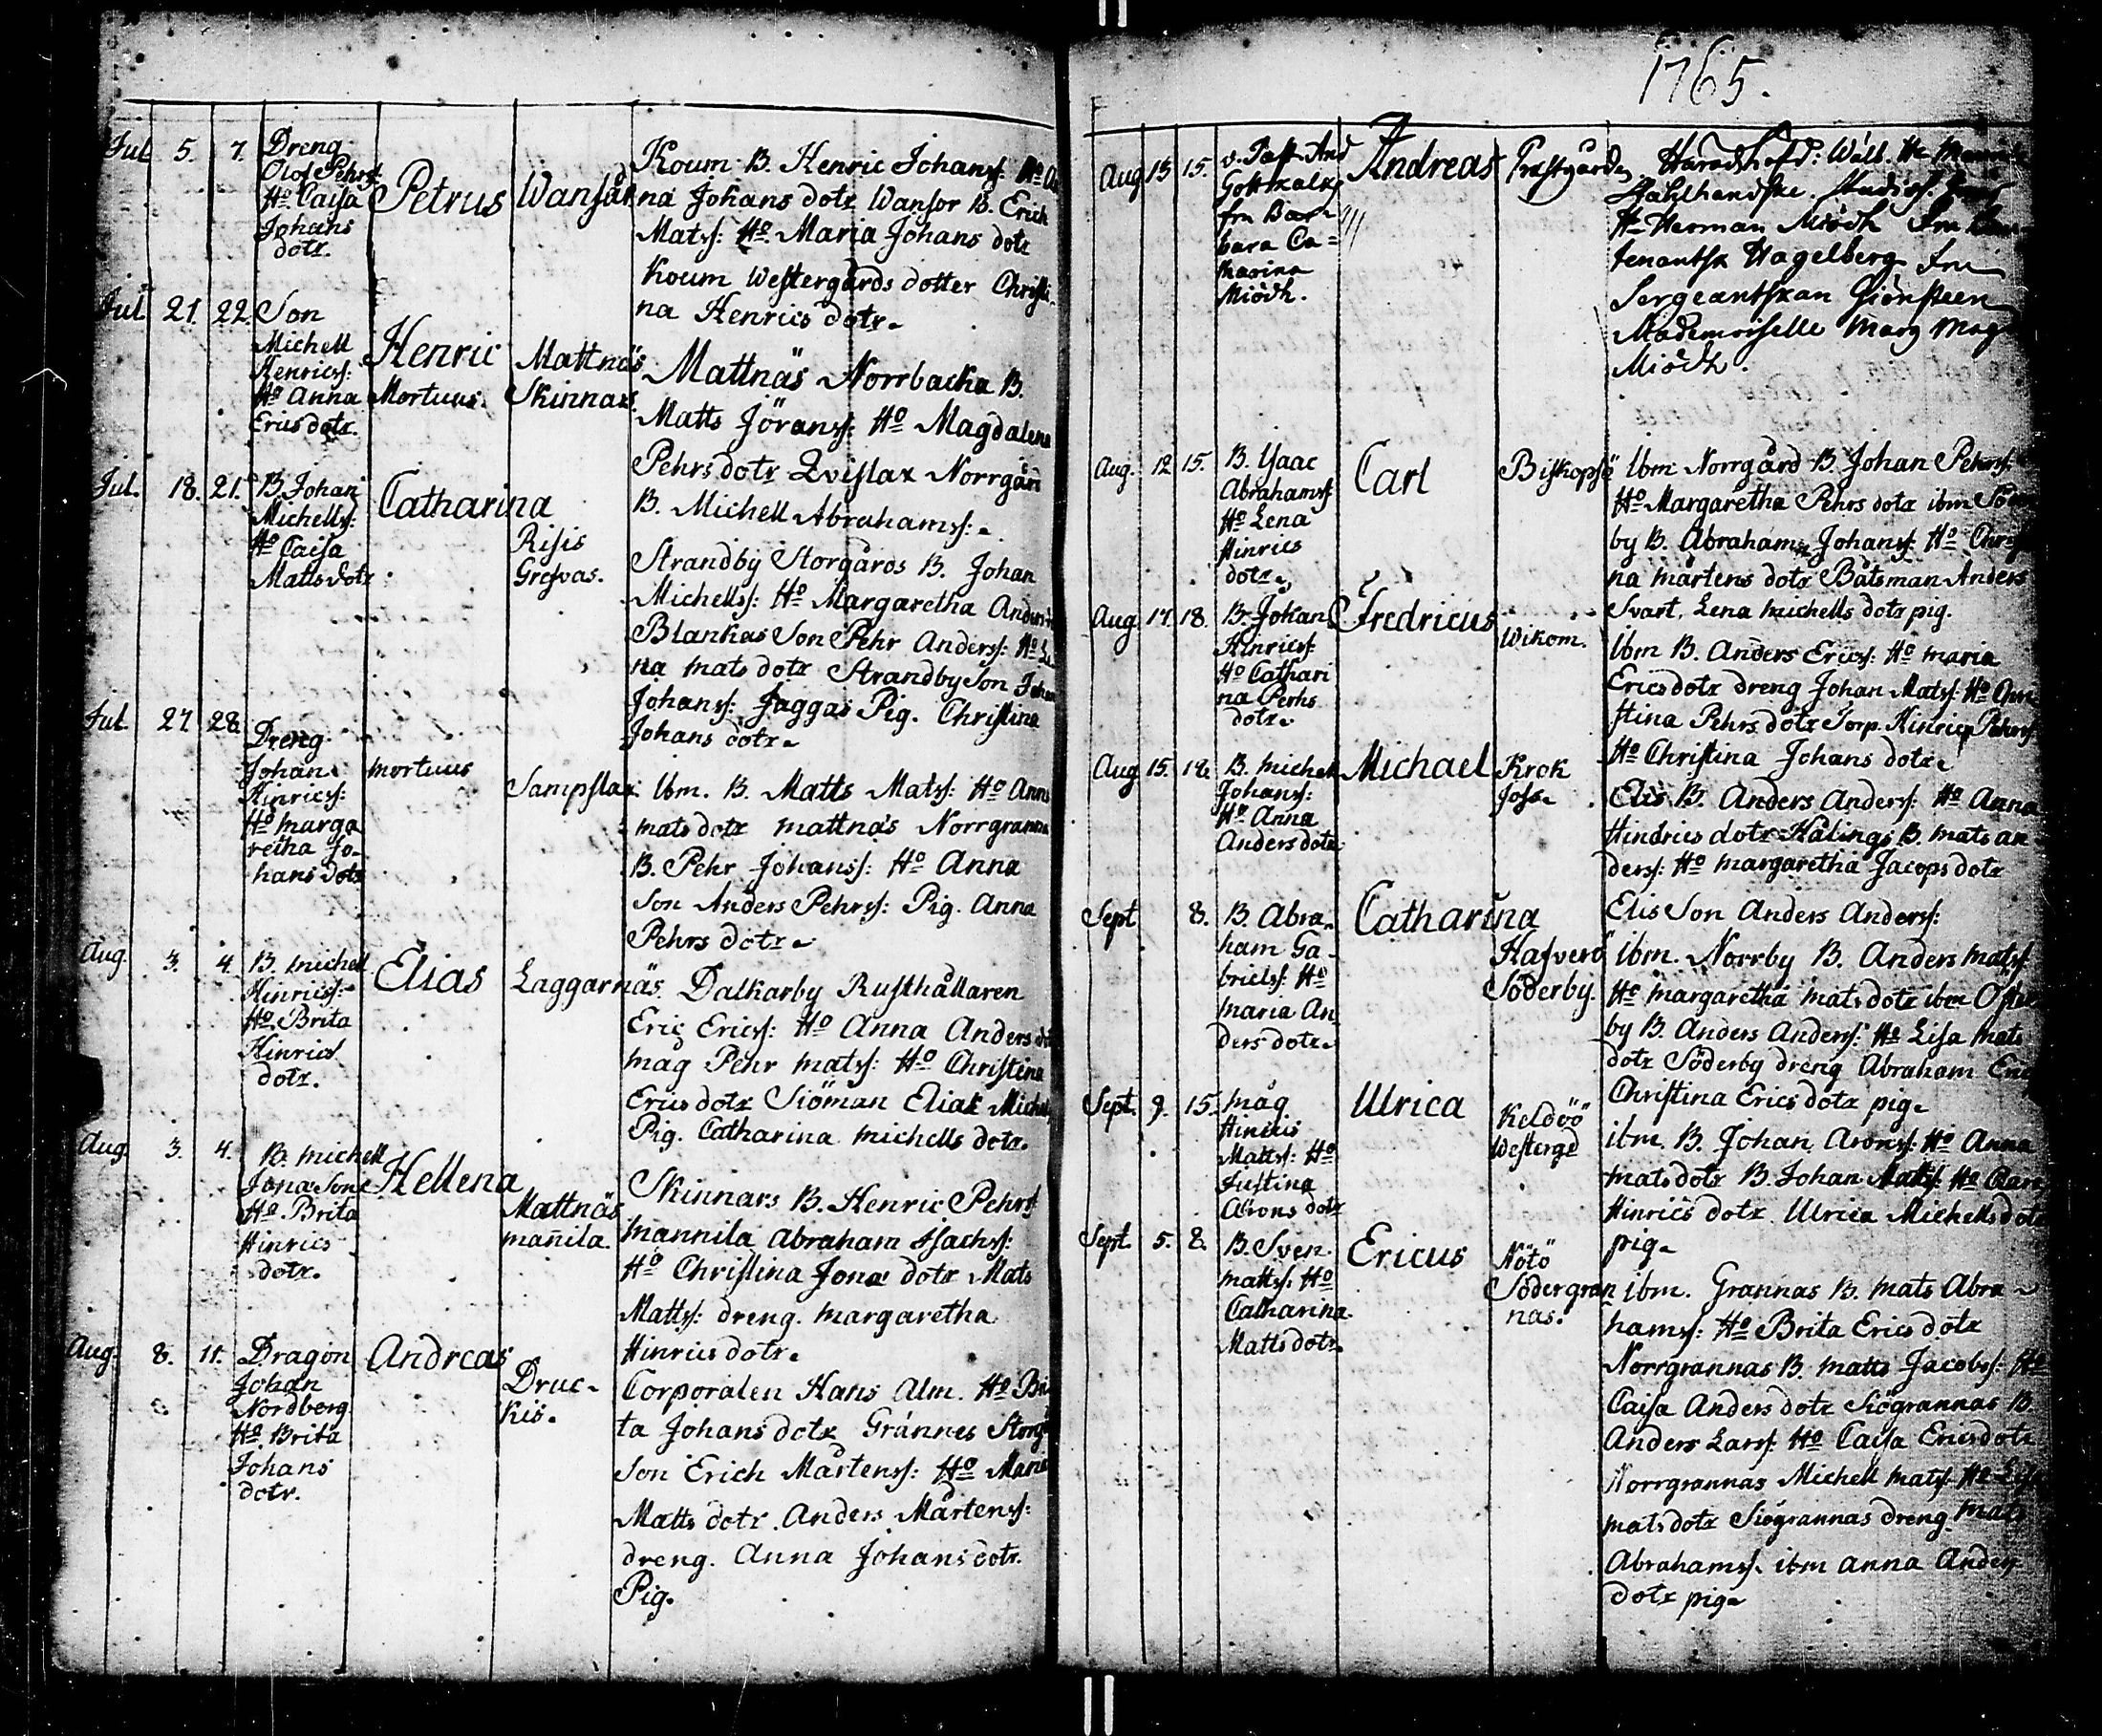 1765.
Jul 5. 7. Dreng
Olof Pehrs:
Ho Caisa
Johans
dotr.
Petrus
Wansår
Koum B. Henric Johanss:
na Johans dotr Wansor B. Erich
Matss: Ho Maria Johans dotr
Koum Westergårds dotter Christi
na Henrics dotr.
Jul 21. 22. Son
Michell
Henricss:
Ho Anna
Erics dotr.
Henric
Mortuus.
Mattnäs
Skinnars.
Mattnäs Norrbacka B.
Matts Jöranss: Ho Magdalena
Pehrs dotr Qvislax Norrgård
B. Michell Abrahamss:
Jul. 18. 21. B. Johan
Michellss:
Ho Caisa
Matts dotr
Catharina
Risis
Gresvas.
Strandby Storgårds B. Johan
Michellss: Ho Margaretha Anders
Blankas Son Pehr Anderss: Ho Le
na mats dotr Strandby Son Johan
Johanss: Jaggas Pig. Christina
Johans dotr.
Jul. 27 28. Dreng
Johan
Hinricss:
Ho marga
retha Jo-
hans dotr
mortuus
Sampslax.
Ibm. B. Matts Matss: Ho Anna
mats dotr mattnäs Norrgranna
B. Pehr Johanss: Ho Anna
Son Anders Pehrss: Pig. Anna
Pehrs dotr.
Aug. 3. 4. B. michel
Hinricss:
Ho. Brita
Hinrics
dotr.
Elias
Laggarnäs.
Dalkarby Rusthållaren
Eric Ericss: Ho Anna Anders
mag Pehr matss: Ho Christina
Erics dotr Siöman Elias Michells
Pig. Catharina michells dotr.
Aug. 3. 4. B. michell
Jona Son
Ho. Brita
Hinrics
dotr.
Hellena
Mattnäs
mañila.
Skinnars B. Henric Pehrss
mannila Abraham Isachss:
Ho Christina Jona dotr Mats
Mattss: dreng. margaretha
Hinrics dotr.
Aug. 8. 11. Dragon
Johan
Nordberg
Ho. Brita
Johans
dotr.
Andreas
Druc-
kis.
Corporalen Hans Alm. Ho Bri
ta Johans dotr Grännes Storg
Son Erich Mårtenss: Ho Maria
Matts dotr. Anders Mårtenss:
dreng. Anna Johans dotr.
Pig.
Aug 13 15. v. Past. And
Gottskalk
fru Bar-
bara Ca=
tharina
Miödh.
Andreas
Prestgården
Häradshöfd: Wälb. Hr
Stahlhandske. Studios.
Hr Herman Miödh Fru
tenantsk Hagelberg Fru
Sergeantskan
Mademoiselle Marg Mag
Miödh.
Aug. 12 15. B. Ysaac
Abrahamss:
Ho Lena
Hinrics
dotr.
Carl
Biskopsö
Ibm Norrgård B. Johan Pehrss:
Ho Margaretha Pehrs dotr ibm Söder
by B. Abraham Johanss: Ho Chri
na mårtens dotr Båtsman Anders
Svart. Lena michells dotr pig.
Aug 17. 18. B. Johan
Hinricss:
Ho Cathari
na Perhs
dotr.
Fredricus
Wikom.
Ibm B. Anders Ericss: Ho maria
Erics dotr dreng Johan Matss: Ho Chri
stina Pehrs dotr Torp. Hinrics Pehrss
Ho Christina Johans dotr.
Aug 15. 18. B. michel
Johanss:
Ho Anna
Anders dotr.
Michael
Krok
Joss.
Elis B. Anders Anderss: Ho Anna
Hindrics dotr Hälings B. mats an
derss: Ho margaretha Jacops dotr
Elis Son Anders Anderss:
Sept 8. B. Abra-
ham Ga-
brielss: Ho
maria An-
ders dotr.
Catharina
Hafverö
Söderby.
ibm. Norrby B. Anders matss
Ho margaretha mats dotr ibm Öster
by B. Anders Anderss: Ho Lisa mats
dotr Söderby dreng Abraham
Christina Erics dotr pig.
Sept. 9. 15. måg
Hinrics
Mattss: Ho
Justina
Arons dotr
Ulrica
Keldöö
Westergd
ibm B. Johan Aronss: Ho Anna
mats dotr B. Johan Matss: Ho Carin
Hinrics dotr Ulrica Michells dotr
pig.
Sept. 5. 8. B. Sven
mattss: Ho
Catharina
Matts dotr.
Ericus
Nötö
Södergran
nas.
ibm. Grannas B. mats Abra
hamss: Ho Brita Erics dotr
Norrgrannas B. matts Jacobss: Ho
Caisa Anders dotr Siögrannas B.
Anders Larss: Ho Caisa Erics dotr
Norrgrannas Michell matss: Ho Lisa
mats dotr Siögrannas dreng. mats
Abrahamss. ibm anna Anders
dotr pig.